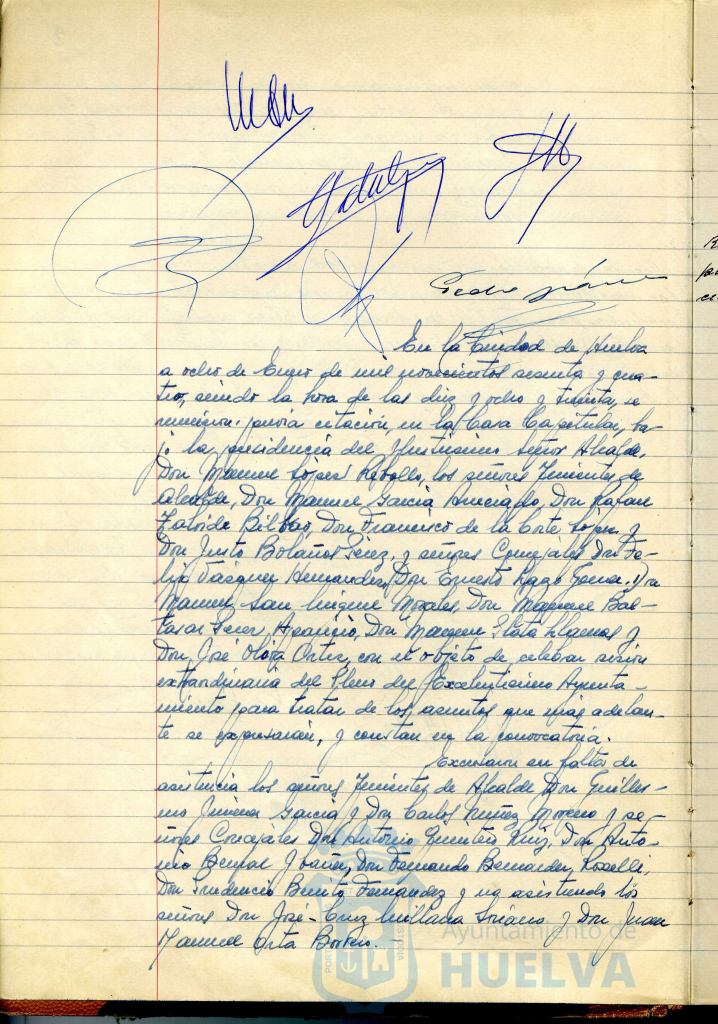 Pedro
En la Ciudad de Huelva
a ocho de Enero de mil novecientos sesenta y cua-
tro, siendo la hora de las diez y ocho y treinta, se
reunieron previa citación, en la Casa Capitular, ba-
jo la presidencia del Ilustrísimo Señor Alcalde,
Don Manuel López Rebollo, los señores Tenientes de
Alcalde, Don Manuel García Don Rafael
Bilbao, Don Francisco de la Corte López y
Don Justo Bolaños Pérez, y señores Concejales Don Fe-
lipe Vázquez Hernández, Don Ernesto Lazo Don
Manuel San Miguel Morales, Don Manuel Bal-
tasar Aparicio, Don Manuel Llamas y
Don José Oliva Ortiz, con el objeto de celebrar sesión
extraordinaria del Pleno del Excelentísimo Ayunta-
miento para tratar de los asuntos que más adelan-
te se expresarán, y constan en la convocatoria.
Excusaron su falta de
asistencia los señores Tenientes de Alcalde Don Guiller-
mo Jiménez García y Don Carlos Núñez Moreno y se-
ñores Concejales Don Antonio Ruiz, Don Anto-
nio Bernal Don Fernando Bernardez
Don Prudencio Benito Fernández y no asistiendo los
señores Don José-Cruz Soriano y Don Juan
Manuel Orta Borrero.
Ayuntamiento de
HUELVA